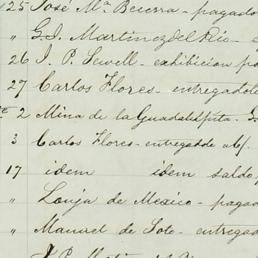 25 José Mª Becerra - pagado
" G. S. Martinez del Rio - e
26 J. P. Sewell - exhibicion po
27 Carlos Flores - entregadole
2 Mina de la Guadalupita. G
3 Carlos Flores - entregadole a/c
17 idem idem saldo
" Lonja de Mexico - pagad
" Manuel de Soto - entregad